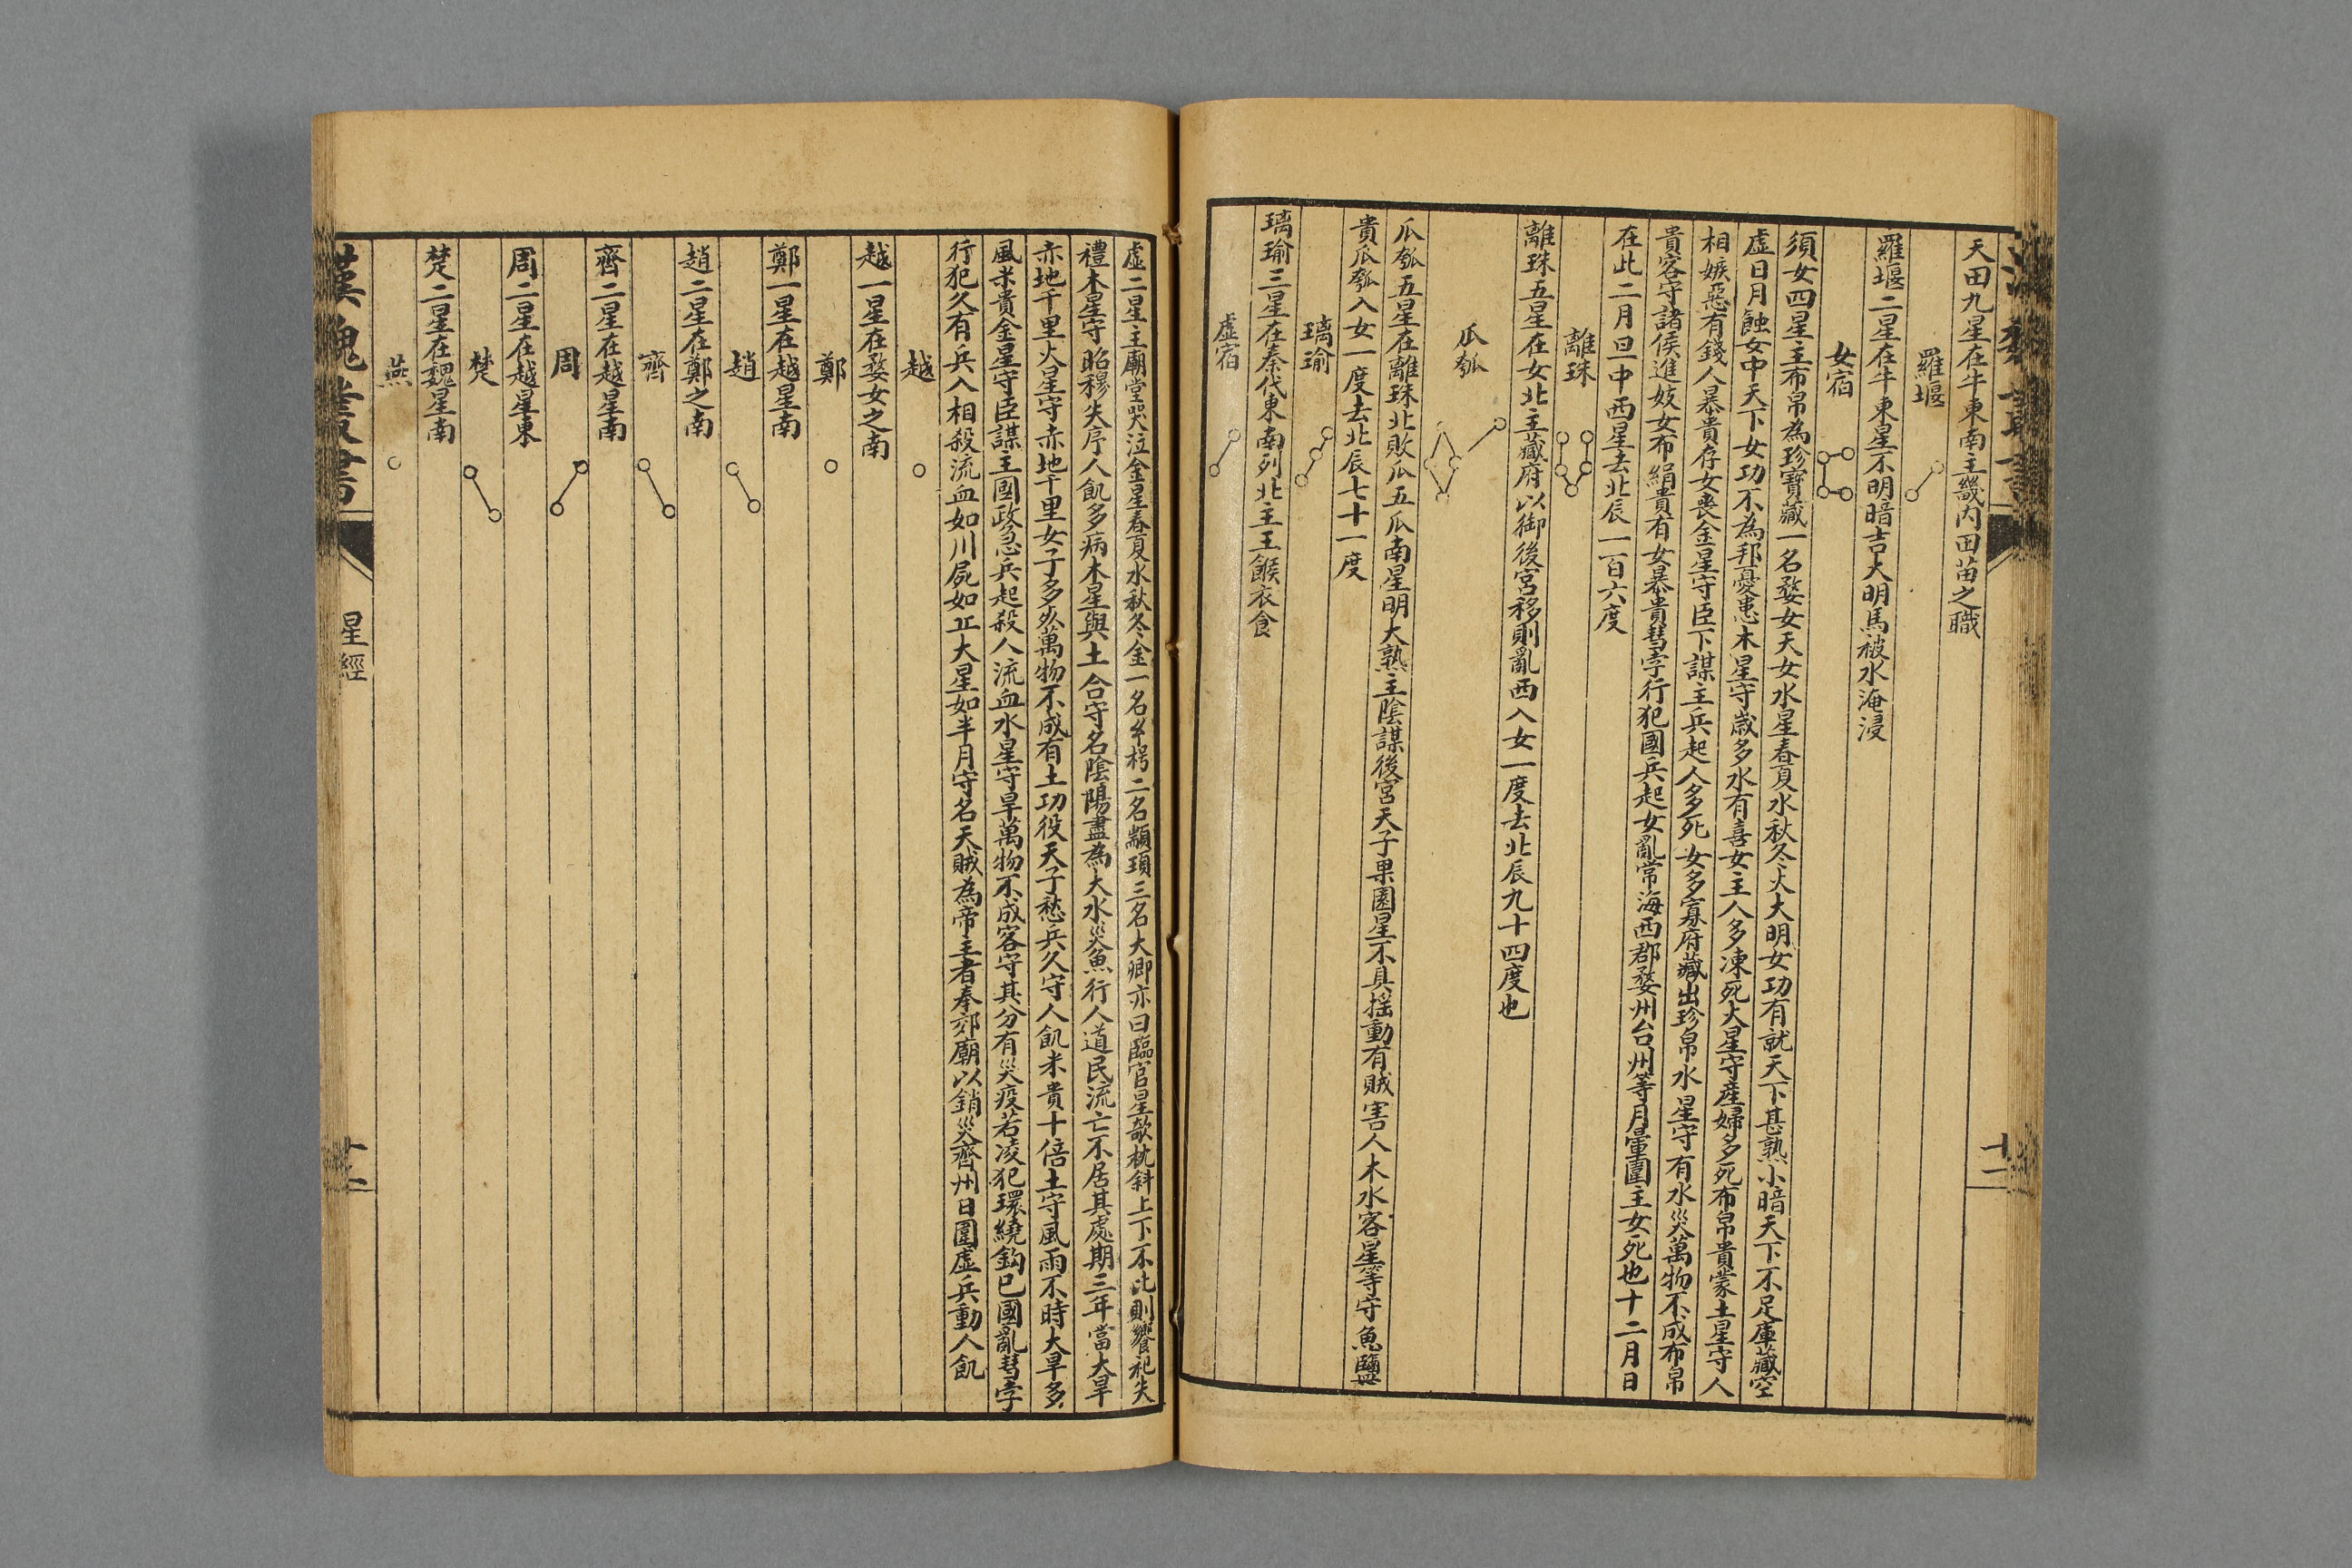 天田九星在牛東南主畿内田苗之職
羅堰
羅堰二星在牛東星不明暗吉大明馬被水淹浸
女宿
須女四星主布帛為珍寶藏一名婺女天女水星春夏水秋冬火大明女功有就天下甚熟小暗天下不足庫藏空
虛日月蝕女中天下女功不為邦憂患木星守歲多水有喜女主人多凍死火星守產婦多死布帛貴蒙土星守人
相嫉惡有錢人暴貴存女喪金星守臣下謀主兵起人多死女多寡府藏出珍帛水星守有水災萬物不成布帛
貴客守諸侯進妓女布絹貴有女暴貴彗孛行犯國兵起女亂常海西郡婺州台州等月暈圍主女死也十二月日
在此二月旦中西星去北辰一百六度
離珠
離珠五星在女北主藏府以御後宮移則亂西入女一度去北辰九十四度也
瓜瓠
瓜瓠五星在離珠北敗瓜五瓜南星明大熟主陰謀後宮天子果園星不具搖動有賊害人木水客星等守魚鹽
貴瓜瓠入女一度去北辰七十一度
璃瑜
璃瑜三星在秦代東南列北主王餱衣食
虛宿
虛二星主廟堂哭泣金星春夏水秋冬金一名玄枵二名顓頊三名大卿亦曰臨官星欹枕斜上下不比則饗祀失
禮木星守昭穆失序人飢多病木星與土合守名陰陽盡為大水災魚行人道民流亡不居其處期三年當大旱
赤地千里火星守赤地千里女子多死萬物不成有土功役天子愁兵久守人飢米貴十倍土守風雨不時大旱多
風米貴金星守臣謀主國政急兵起殺人流血水星守旱萬物不成客守其分有災疫若凌犯環繞鈎已國亂彗孛
行犯久有兵入相殺流血如川屍如丘大星如半月守名天賊為帝主者奉郊廟以銷災齊州日圍虛兵動人飢
越
越一星在婺女之南
鄭
鄭一星在越星南
趙
趙二星在鄭之南
齊
齊二星在越星南
周
周二星在越星東
楚
楚二星在魏星南
燕
漢魏叢書
星經
十二